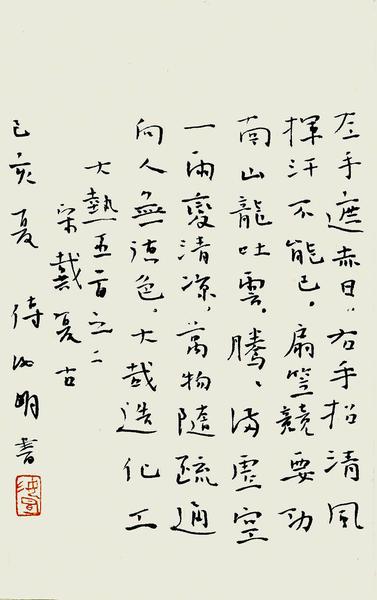 左手遮赤日。右手招清風
揮汗不能已。扇笠競要功
南山龍吐雲。騰、滿虛空
一雨變清涼。萬物隨疏通
向人無德色。大哉造化工
大熱五首之二
宋戴復古
己亥夏 明書